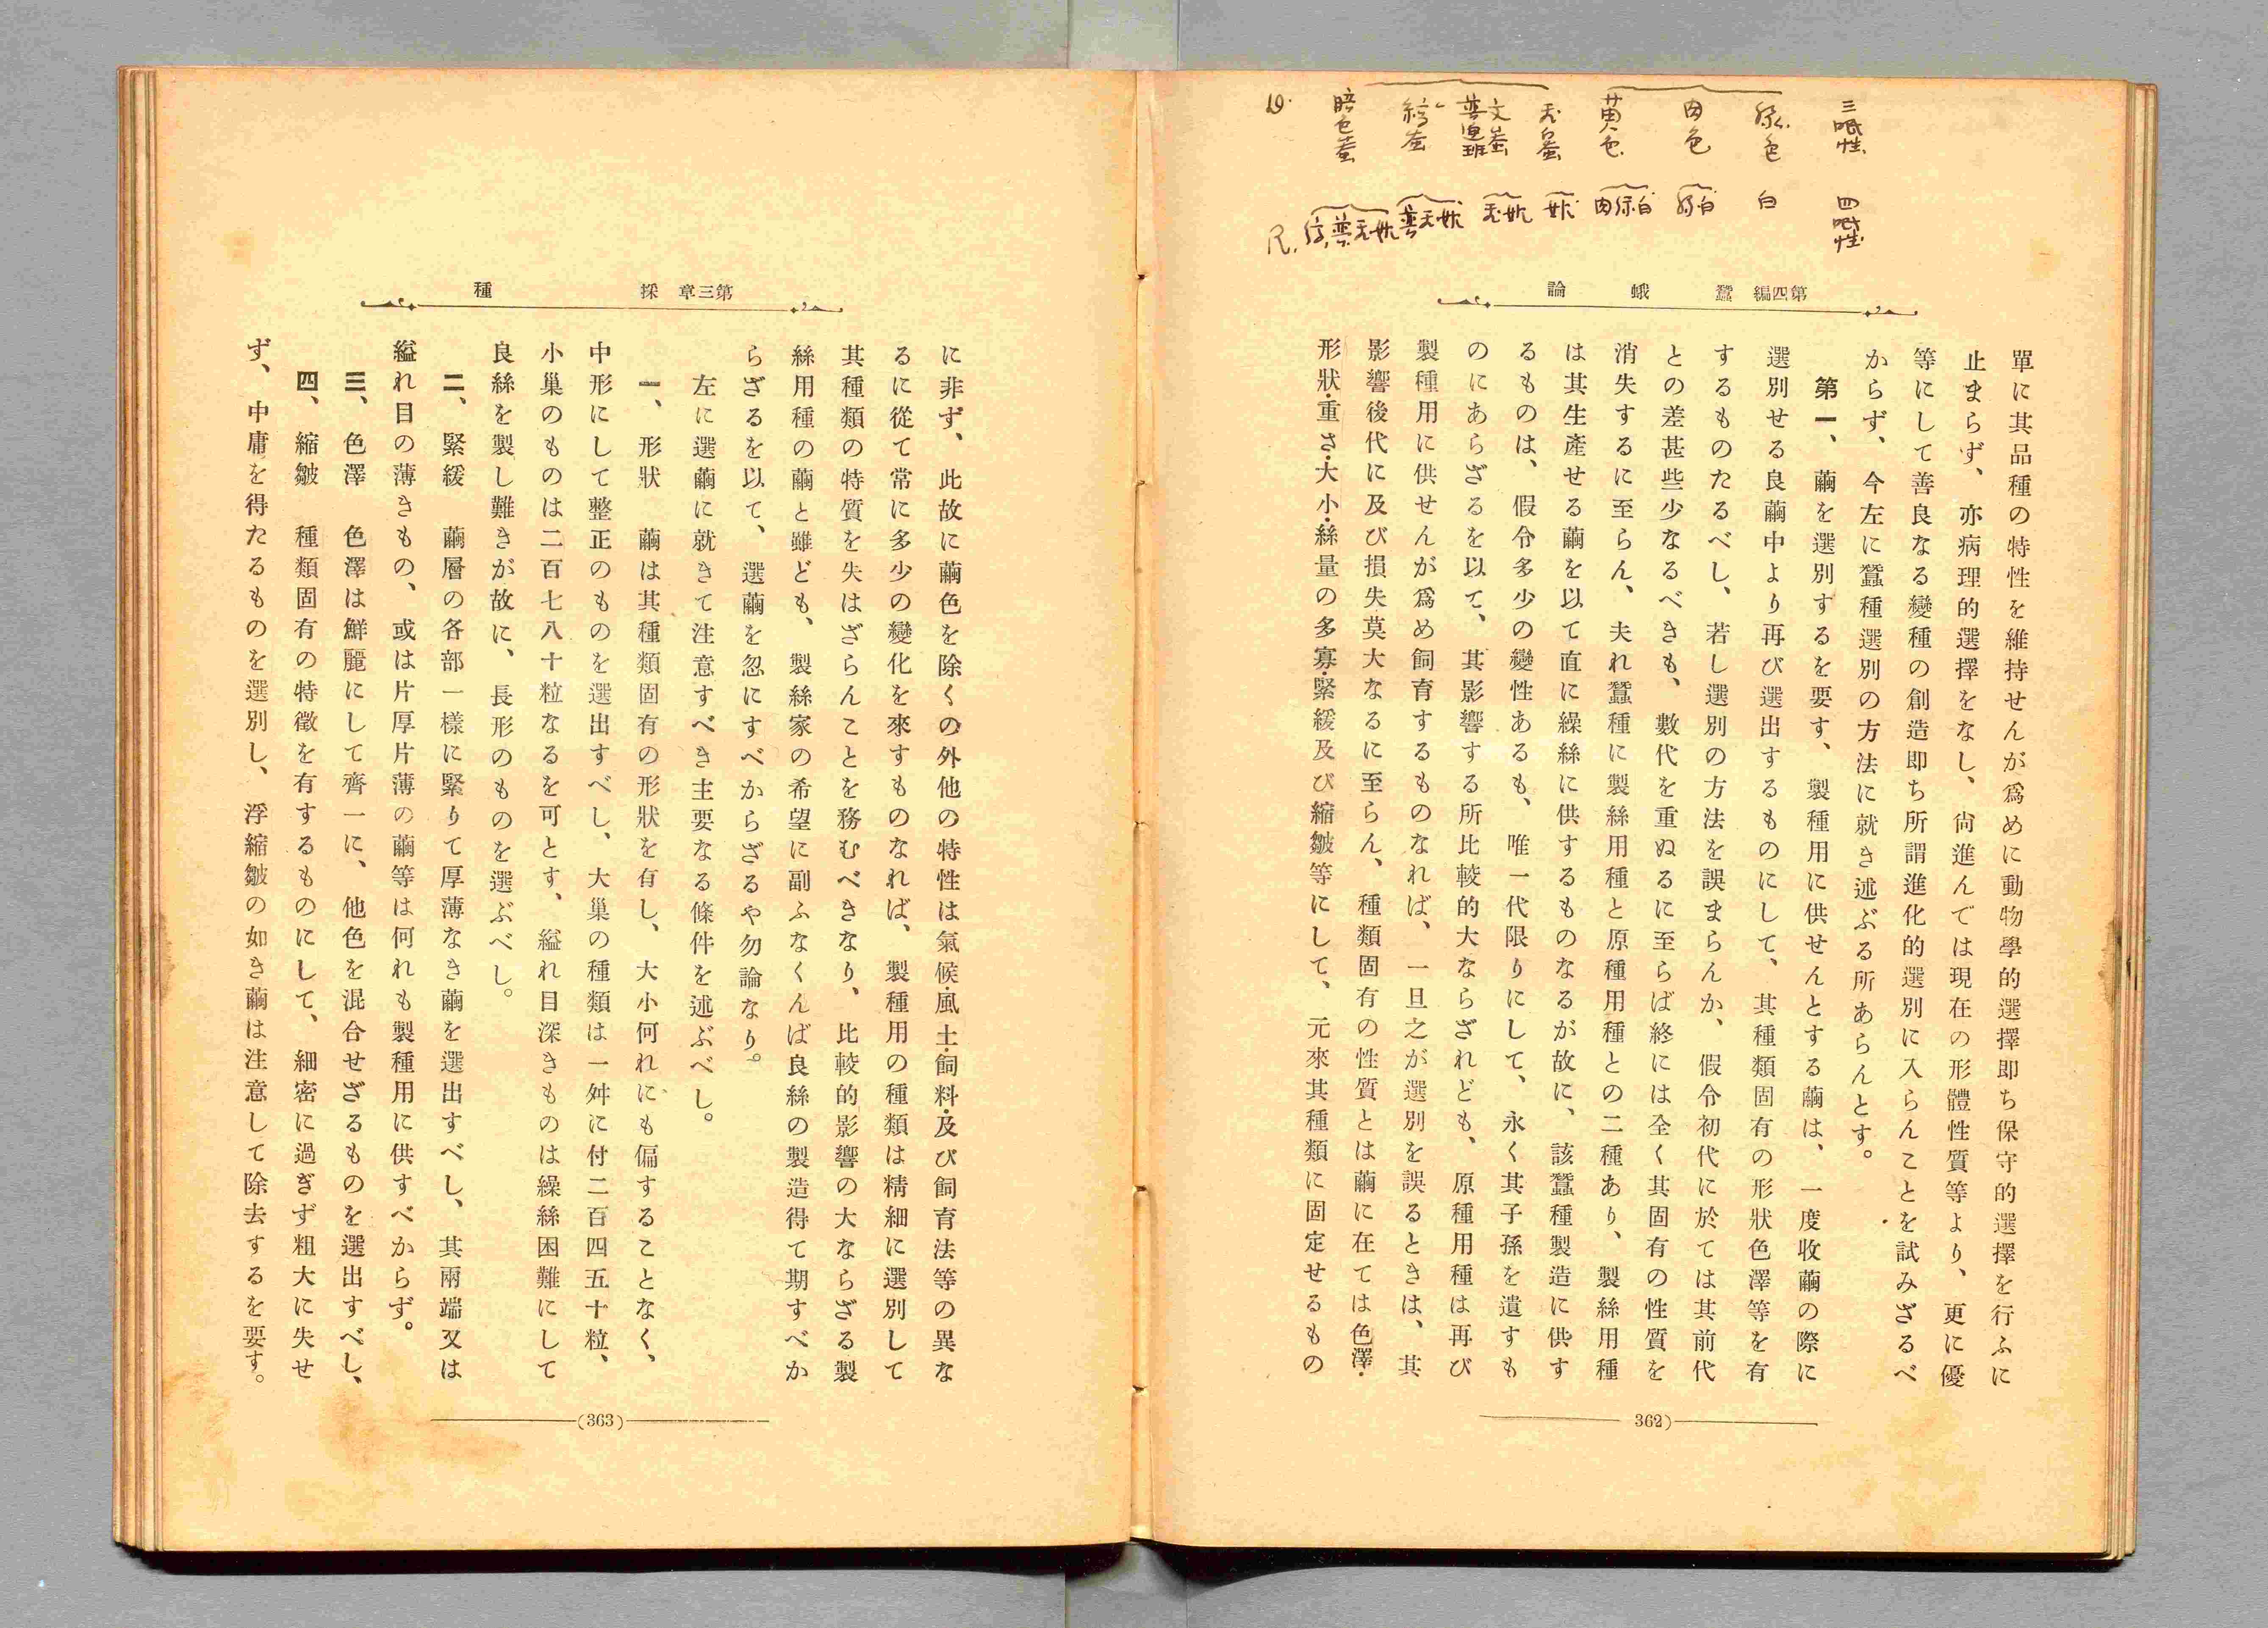 三眠性 四眠性
色 白
肉色
黄色 肉緑白
暗色蚕
第四編 蠶蛾論
單に其品種の特性を維持せんが爲めに動物學的選擇即ち保守的選擇を行ふに
止まらず、亦病理的選擇をなし、尙進んでは現在の形體性質等より、更に優
等にして善良なる變種の創造即ち所謂進化的選別に入らんことを試みざるべ
からず、今左に蠶種選別の方法に就き述ぶる所あらんとす。
第一、繭を選別するを要す、製種用に供せんとする繭は、一度收繭の際に
選別せる良繭中より再び選出するものにして、其種類固有の形狀色澤等を有
するものたるべし、若し選別の方法を誤まらんか、假令初代に於ては其前代
との差甚些少なるべきも、數代を重ぬるに至らば終には全く其固有の性質を
消失するに至らん、夫れ蠶種に製絲用種と原種用種との二種あり、製絲用種
は其生產せる繭を以て直に繰絲に供するものなるが故に、該蠶種製造に供す
るものは、假令多少の變性あるも、唯一代限りにして、永く其子孫を遺すも
のにあらざるを以て、其影響する所比較的大ならざれども、原種用種は再び
製種用に供せんが爲め飼育するものなれば、一旦之が選別を誤るときは、其
影響後代に及び損失莫大なるに至らん、種類固有の性質とは繭に在ては色澤・
形狀・重さ・大小・絲量の多寡・緊緩及び縮皺等にして、元來其種類に固定せるもの
362)
第三章 採種
に非ず、此故に繭色を除くの外他の特性は氣候・風土・飼料・及び飼育法等の異な
るに從て常に多少の變化を來すものなれば、製種用の種類は精細に選別して
其種類の特質を失はざらんことを務むべきなり、比較的影響の大ならざる製
絲用種の繭と雖ども、製絲家の希望に副ふなくんば良絲の製造得て期すべか
らざるを以て、選繭を忽にすべからざるや勿論なり。
左に選繭に就きて注意すべき主要なる條件を述ぶべし。
一、形狀 繭は其種類固有の形狀を有し、大小何れにも偏することなく、
中形にして整正のものを選出すべし、大巢の種類は一舛に付二百四五十粒、
小巢のものは二百七八十粒なるを可とす、縊れ目深きものは繰絲困難にして
良絲を製し難きが故に、長形のものを選ぶべし。
二、緊緩 繭層の各部一樣に緊りて厚薄なき繭を選出すべし、其兩端又は
縊れ目の薄きもの、或は片厚片薄の繭等は何れも製種用に供すべからず。
三、色澤 色澤は鮮麗にして齊一に、他色を混合せざるものを選出すべし、
四、縮皺 種類固有の特徵を有するものにして、細密に過ぎず粗大に失せ
ず、中庸を得たるものを選別し、浮縮皺の如き繭は注意して除去するを要す。
(363)